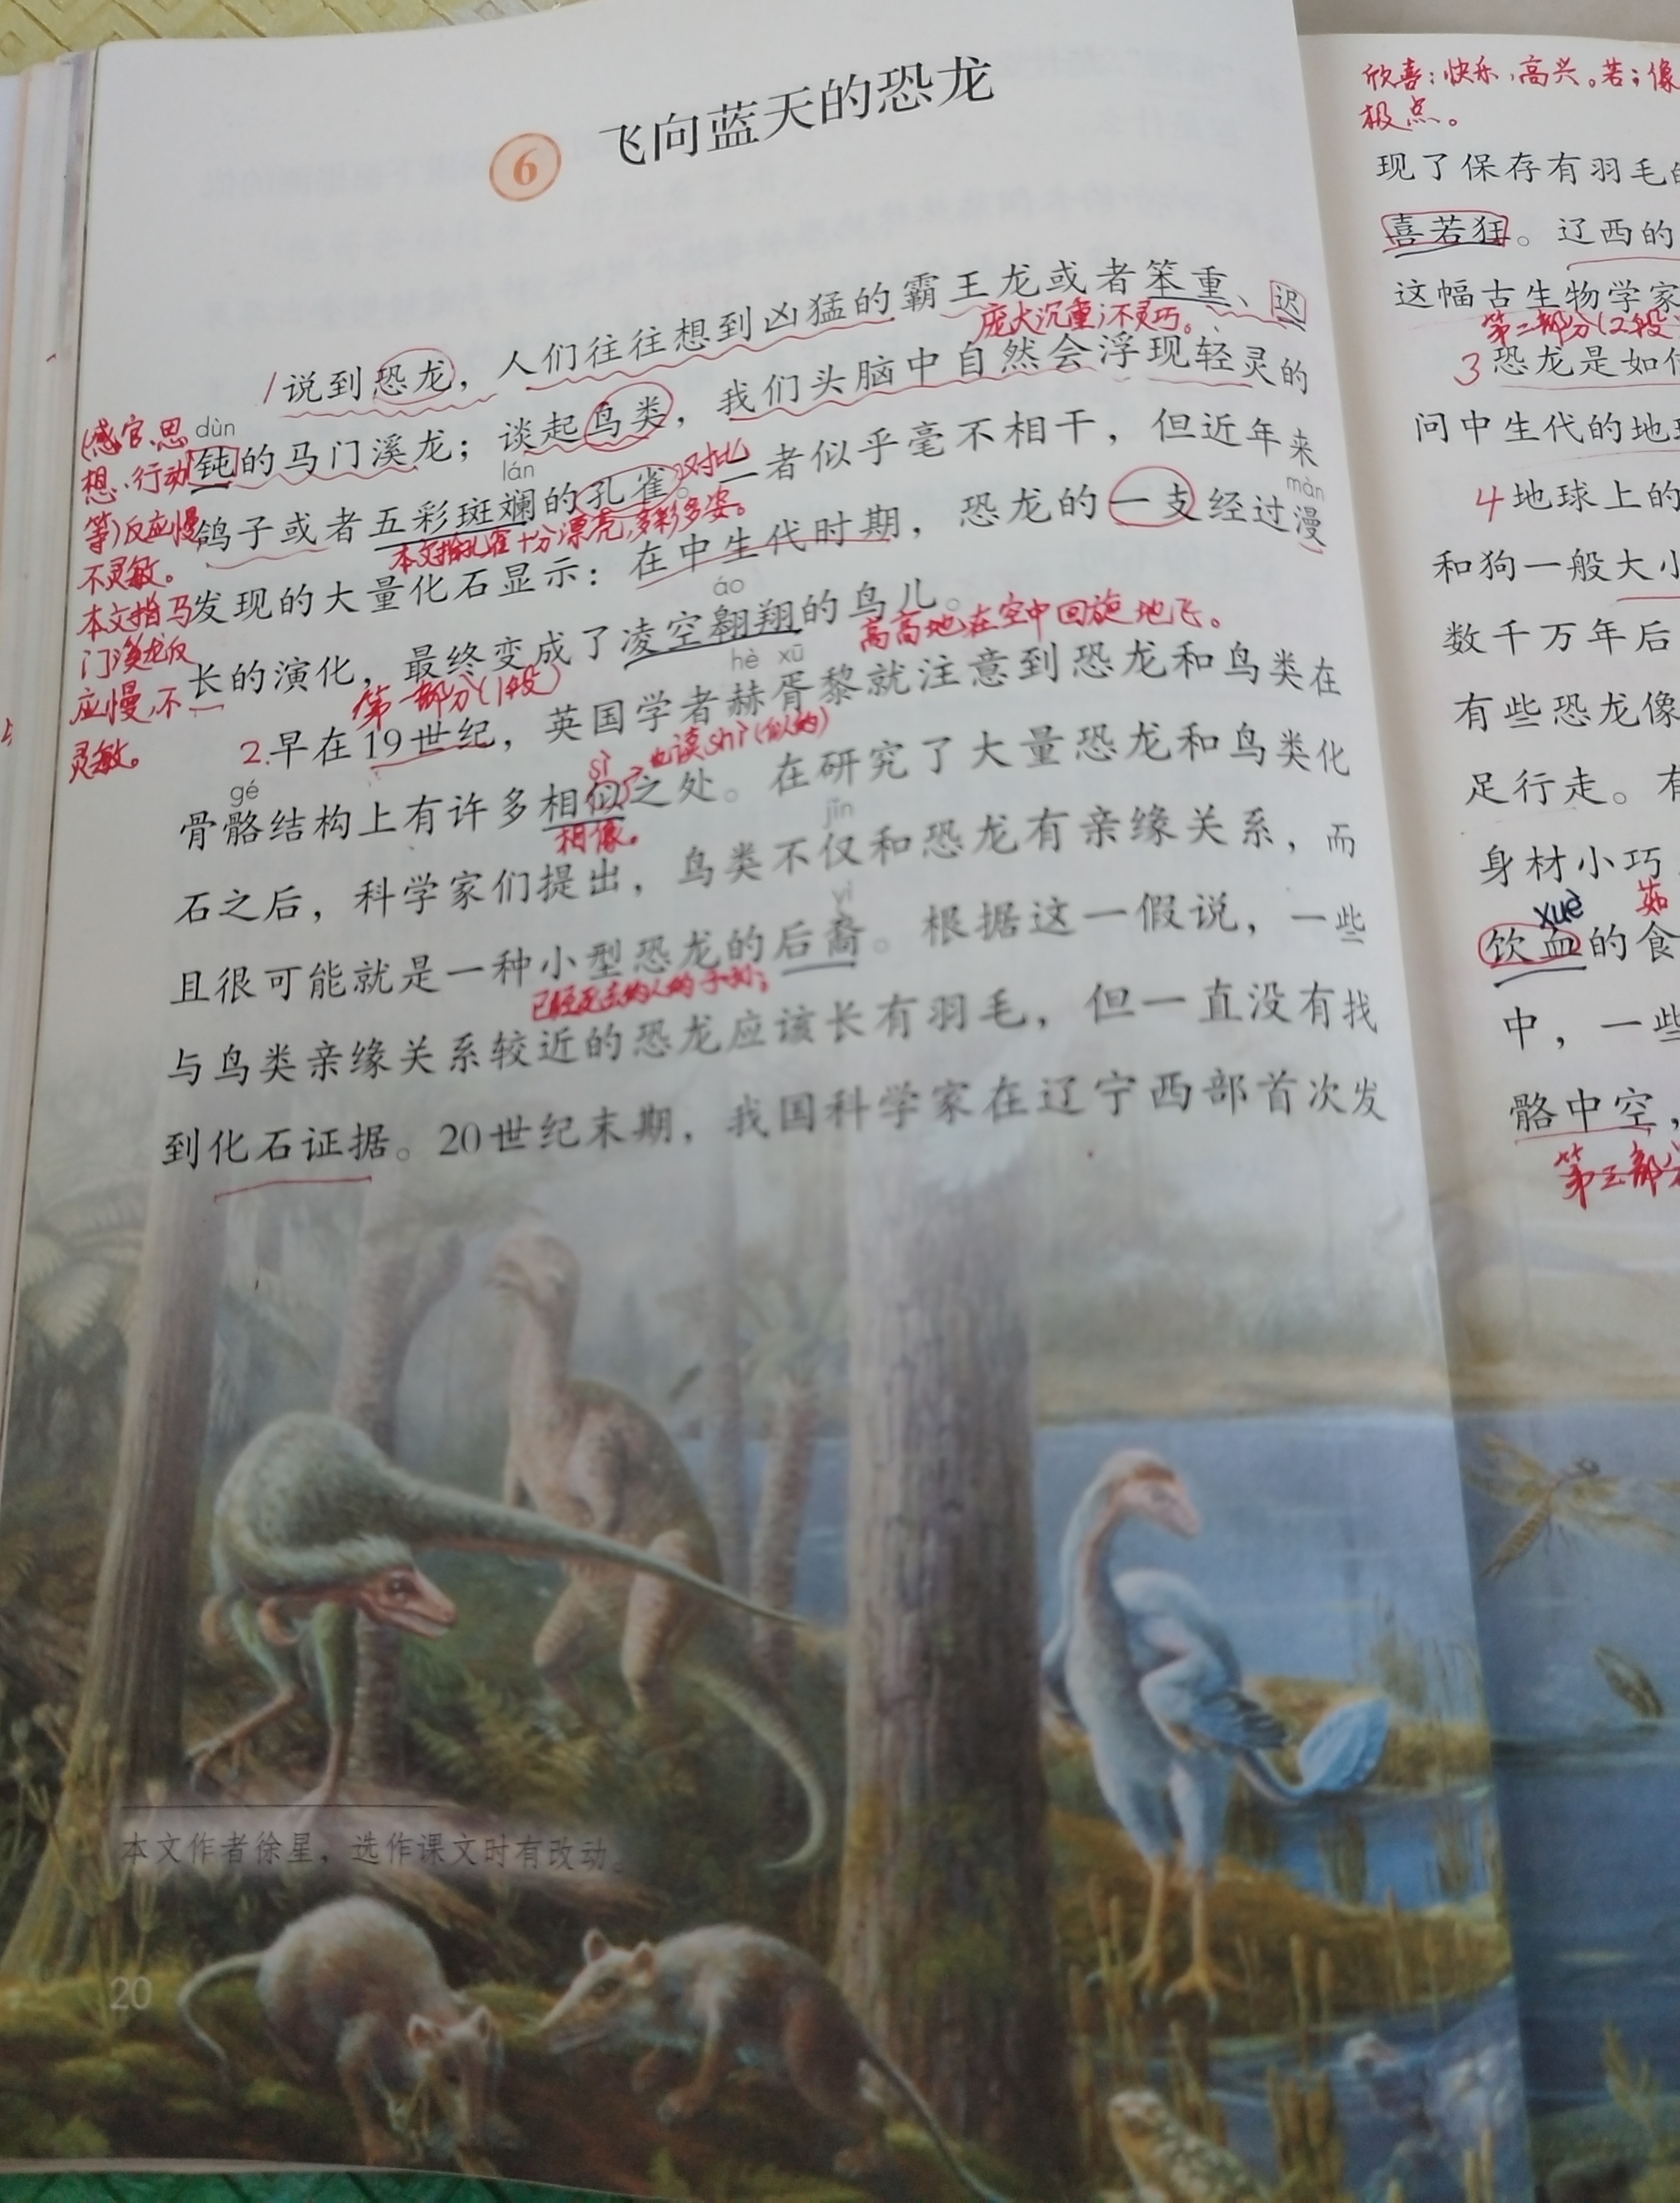 6 飞向蓝天的恐龙
1说到恐龙，人们往往想到凶猛的霸王龙或者笨重、迟
庞大沉重，不灵巧。
dùn
钝的马门溪龙；谈起鸟类，我们头脑中自然会浮现轻灵的
lán
鸽子或者五彩斑斓的孔雀。二者似乎毫不相干，但近年来
对比
本文指孔雀十分漂亮，多彩多姿。
màn
发现的大量化石显示：在中生代时期，恐龙的一支经过漫
áo
长的演化，最终变成了凌空翱翔的鸟儿。
高高地在空中回旋地飞。
第一部分（1段）
hè xū
2.早在19世纪，英国学者赫胥黎就注意到恐龙和鸟类在
gé
sì 也读shì（似的）
骨骼结构上有许多相似之处。在研究了大量恐龙和鸟类化
相像。
jǐn
石之后，科学家们提出，鸟类不仅和恐龙有亲缘关系，而
yì
且很可能就是一种小型恐龙的后裔。根据这一假说，一些
已经死去的人的子孙；
与鸟类亲缘关系较近的恐龙应该长有羽毛，但一直没有找
到化石证据。20世纪末期，我国科学家在辽宁西部首次发
（感官、思
想、行动
等）反应慢
不灵敏。
本文指马
门溪龙反
应慢，不
灵敏。
本文作者徐星，选作课文时有改动。
20
欣喜：快乐，高兴。若：像
极点。
现了保存有羽毛的
喜若狂。辽西的
这幅古生物学家
第二部分（2段）
3恐龙是如何
问中生代的地球
4地球上的
和狗一般大小
数千万年后
有些恐龙像
足行走。有
身材小巧
xuè 茹
饮血的食
中，一些
骼中空，
第三部分